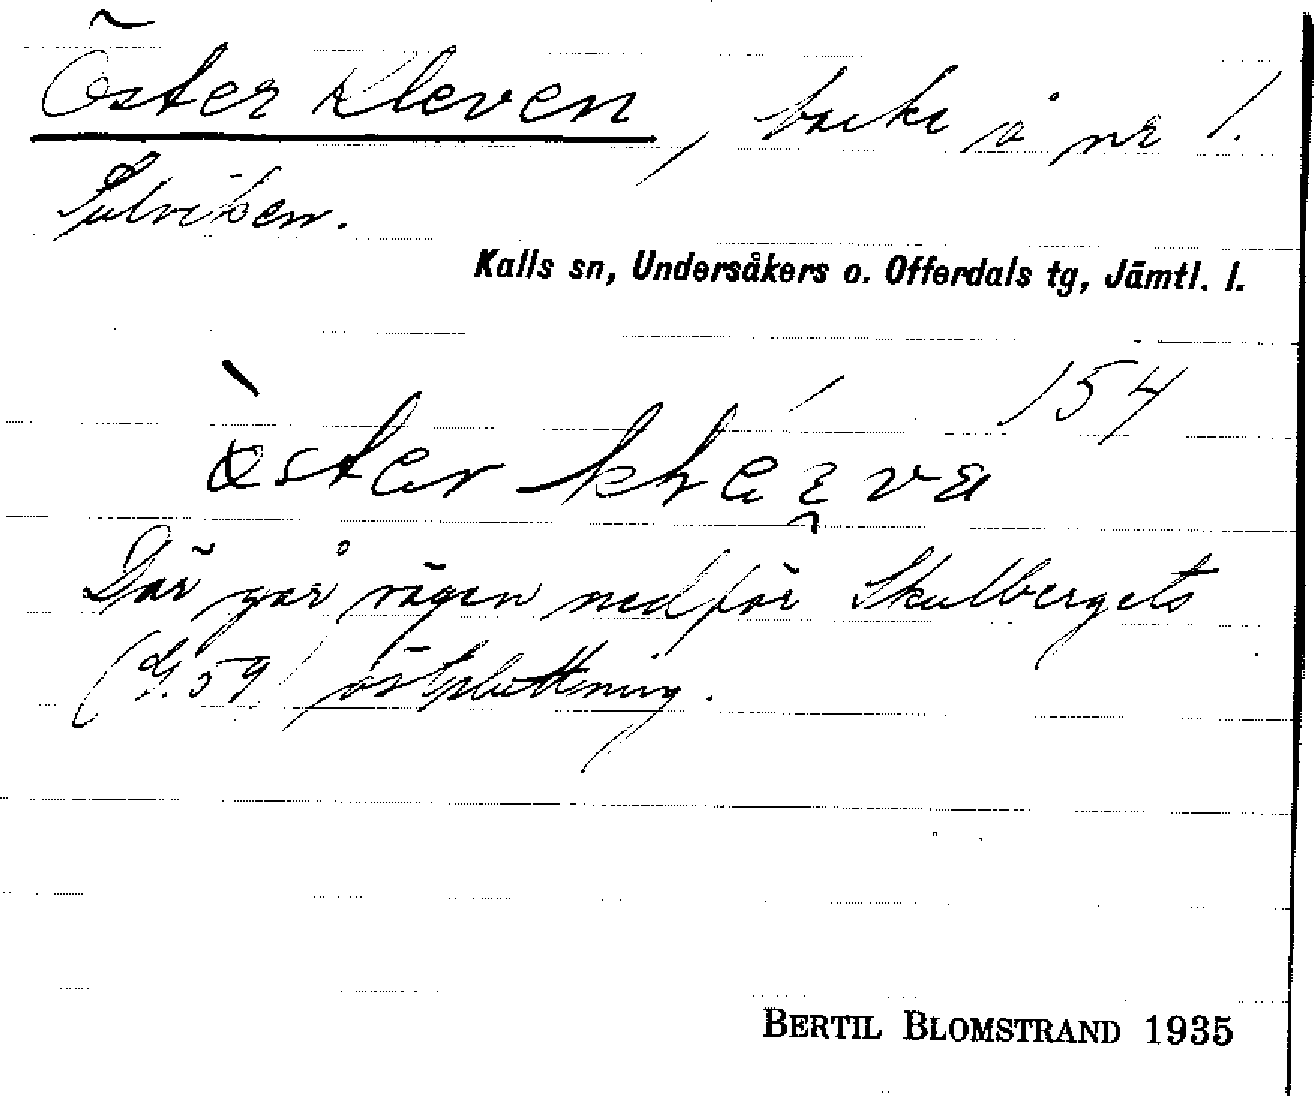 Öster Kleven, backe å nr 1.
Sulviken.
Kalls sn, Undersåkers o. Offerdals tg, Jämtl. l.
154
Där går vägen nedför Skulbergets
(G. 59) östsluttning.
BERTIL BLOMSTRAND 1935